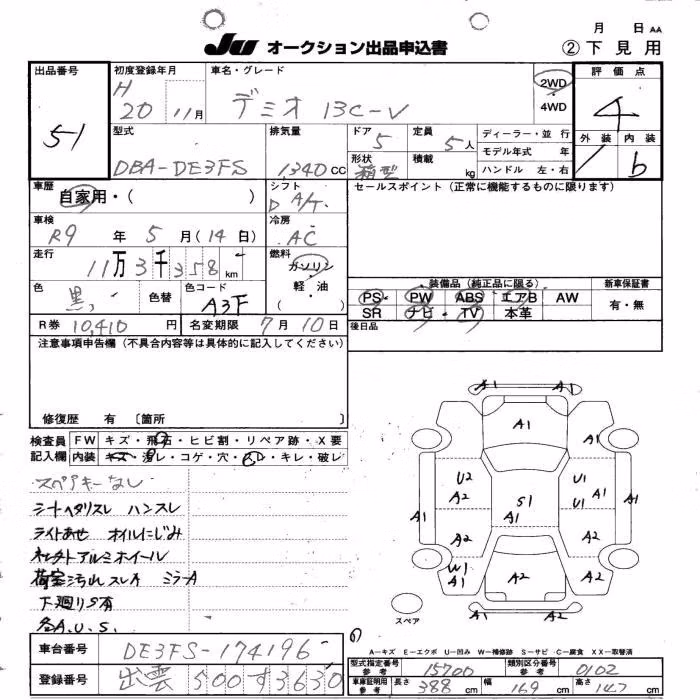 Ju オークション出品申込書
月 日 AA
② 下見用
出品番号
51
初度登録年月
H 20 11月
車名・グレード
デミオ 13C-V
2WD
・
4WD
評価点
4
外装 内装
b
型式
DBA-DE3FS
排気量
1340 CC
ドア 5
定員 5人
形状 箱型
積載 kg
ディーラー・並 行
モデル年式 年
ハンドル 左・右
車歴
自家用・( )
シフト
D A/T
セールスポイント(正常に機能するものに限ります)
車検
R9 年 5 月(14日)
冷房
AC
走行
11万3千358km
燃料
ガソリン
・
軽・油
( )
色
黒
色替
色コード
A3F
装備品(純正品に限る)
新車保証書
PS PW ABS エアB AW
SR ナビ TV 本革
有・無
後日品
R券 10,410 円
名変期限 7月10日
注意事項申告欄(不具合内容等は具体的に記入してください)
修復歴 有 〔箇所 〕
検査員
記入欄
FW キズ・飛石・ヒビ割・リペア跡・X要
内装 キズ・汚レ・コゲ・穴・スレ・キレ・破レ
スペアキーなし
シートヘタリスレ ハンスレ
ライトあせ オイルにじみ
社外アルミホイール
荷室汚れスレA ミラーA
下廻りS有
各A.U.S.
A1 A1
A1
A1
U2
A2
S1
A1
U1
U1
A1
A1
A1
A2
A2
W1
A1
A2
A2
A1 A2
スペア
A-キズ E-エクボ U-凹み W-補修跡 S-サビ C-腐食 XX-取替済
車台番号 DE3FS-174196
登録番号 出雲 500す3630
型式指定番号
参考 15700
類別区分番号
参考 0102
車庫証明用
参考
長さ 388 cm 幅 169 cm 高さ 147 cm